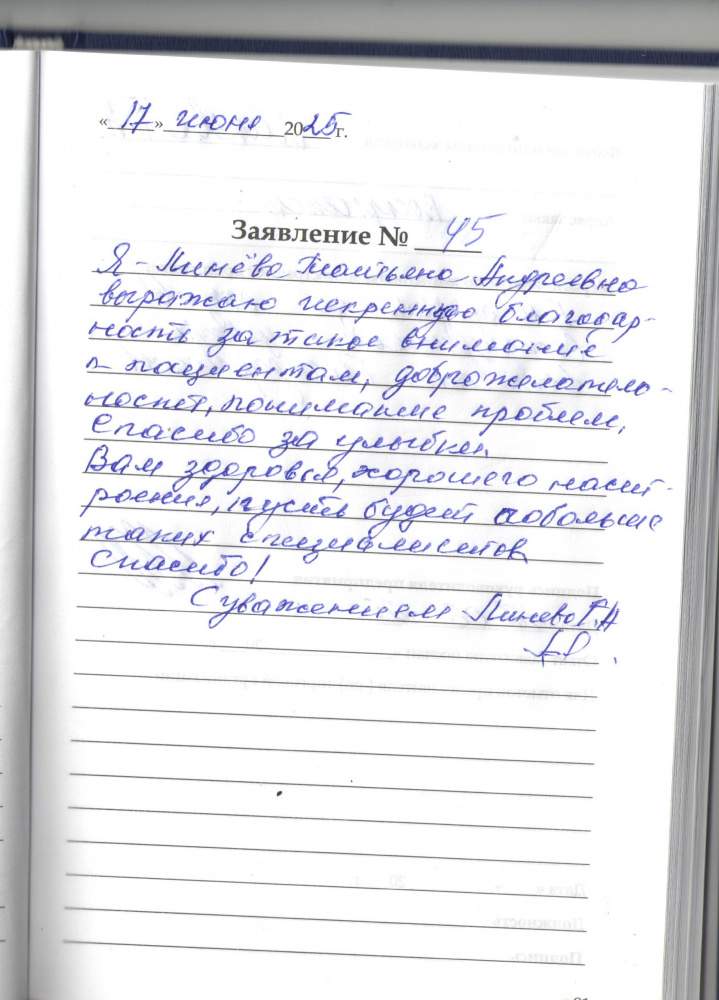 «17» июня 2025 г.
Заявление № 45
Я - Линёва Татьяна Андреевна
выражаю искреннюю благодар-
ность за такое внимание
к пациентам, доброжелатель-
ность, понимание проблем,
Спасибо за улыбки.
Вам здоровья, хорошего наст-
роения, пусть будет побольше
таких специалистов
Спасибо!
С уважением Линёва Т.А